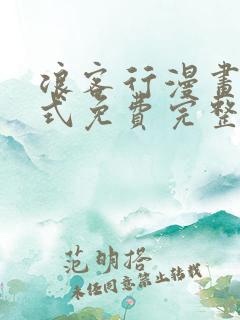 浪客行漫畫
式免費完整
范明搭
未经同意禁止转载